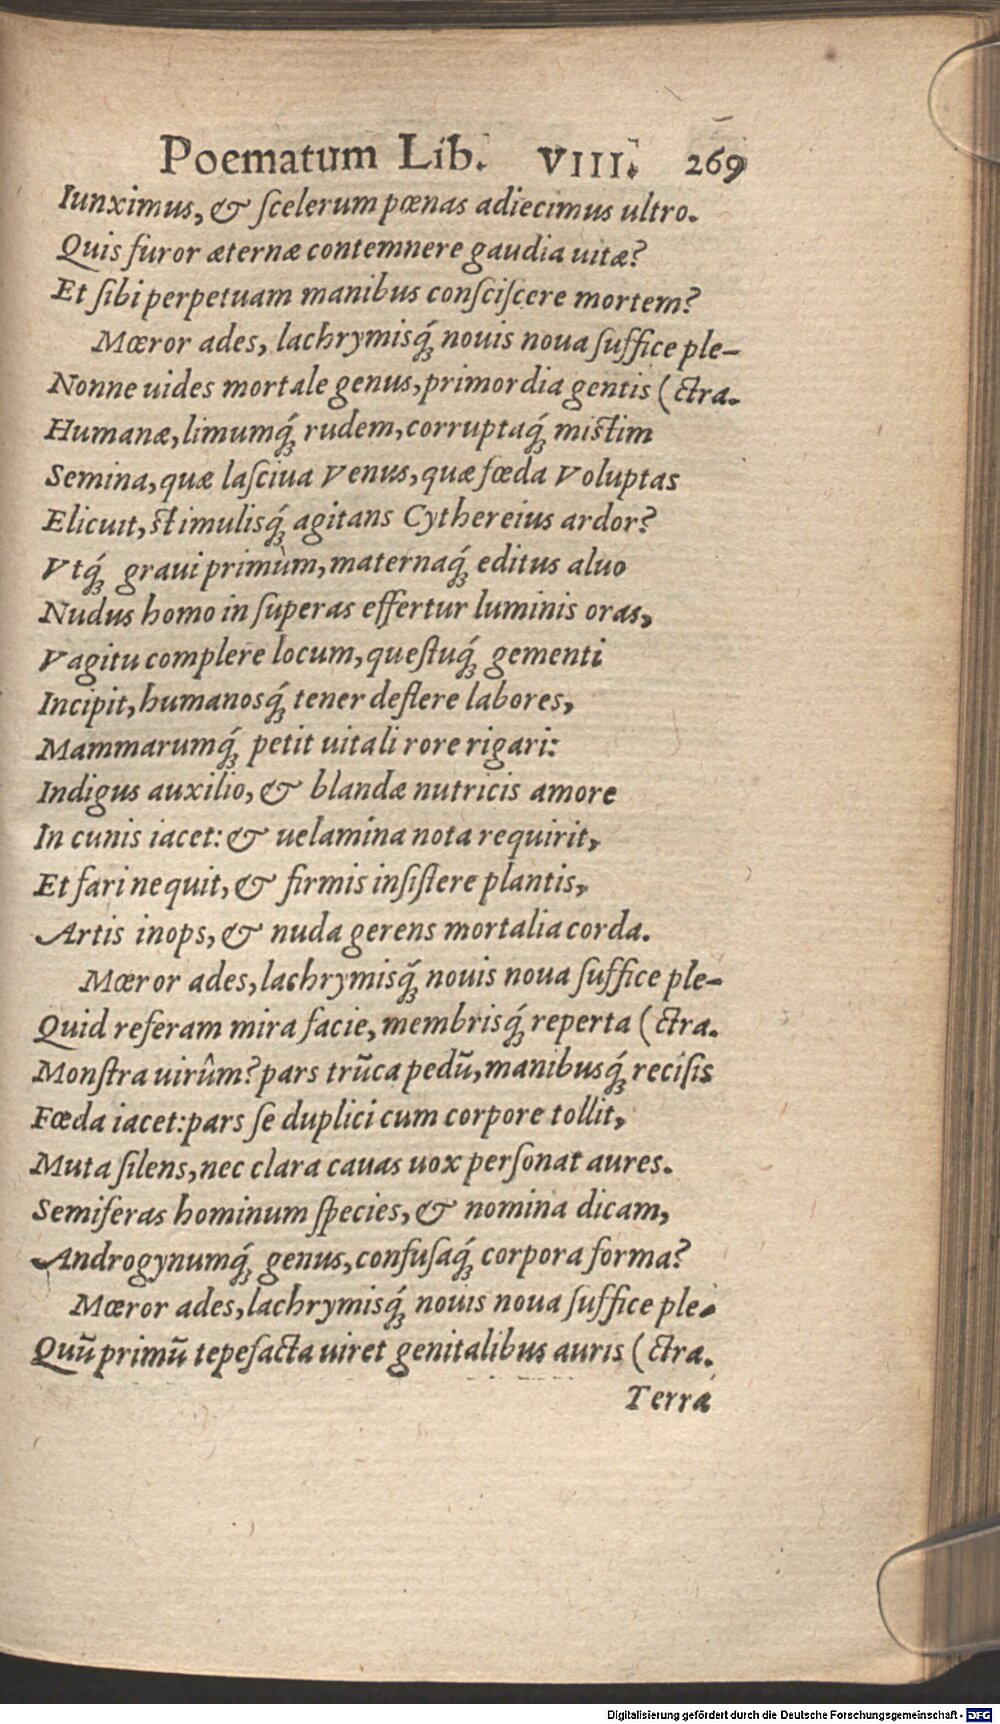 Poematum Lib. VIII. 269
Iunximus, & ſcelerum pœnas adiecimus ultro.
Quis furor æternæ contemnere gaudia uitæ?
Et ſibi perpetuam manibus conſciſcere mortem?
Mœror ades, lachrymisq́ꝫ nouis noua ſuffice ple-
Nonne uides mortale genus, primordia gentis (ctra.
Humanæ, limumq́ꝫ rudem, corruptaq́ꝫ mistim
Semina, quæ laſciua Venus, quæ fœda Voluptas
Elicuit, stimulisq́ꝫ agitans Cythereius ardor?
Vtq́ꝫ graui primùm, maternaq́ꝫ editus aluo
Nudus homo in ſuperas effertur luminis oras,
Vagitu complere locum, queſtuq́ꝫ gementi
Incipit, humanosq́ꝫ tener deflere labores,
Mammarumq́ꝫ petit uitali rore rigari:
Indigus auxilio, & blandæ nutricis amore
In cunis iacet: & uelamina nota requirit,
Et fari nequit, & firmis inſiſtere plantis,
Artis inops, & nuda gerens mortalia corda.
Mœror ades, lachrymisq́ꝫ nouis noua ſuffice ple-
Quid referam mira facie, membrisq́ꝫ reperta (ctra.
Monſtra uirûm? pars trũca pedũ, manibusq́ꝫ reciſis
Fœda iacet: pars ſe duplici cum corpore tollit,
Muta ſilens, nec clara cauas uox perſonat aures.
Semiferas hominum ſpecies, & nomina dicam,
Androgynumq́ꝫ genus, confuſaq́ꝫ corpora forma?
Mœror ades, lachrymisq́ꝫ nouis noua ſuffice ple-
Quũ primũ tepefacta uiret genitalibus auris (ctra.
Terra
Digitalisierung gefördert durch die Deutsche Forschungsgemeinschaft - DFG